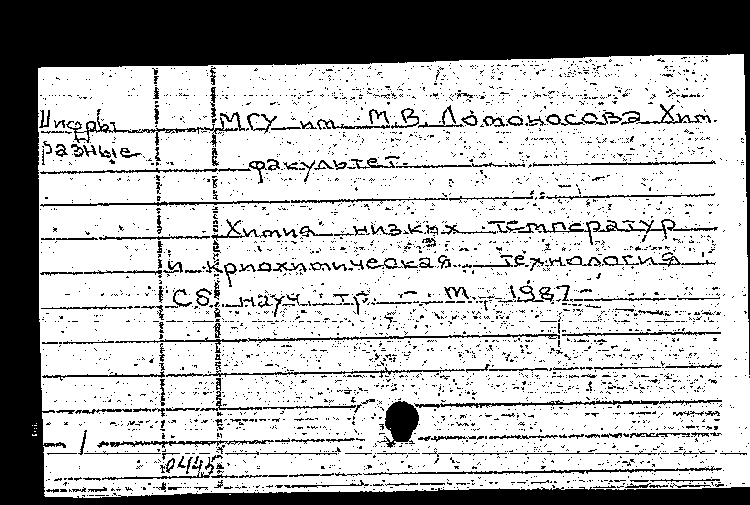 Шифры МГУ им. М.В. Ломоносова Хим.
разные факультет.
Химия низких температур
и криохимическая технология :
Сб. науч. тр. - М., 1987 -
1
0445